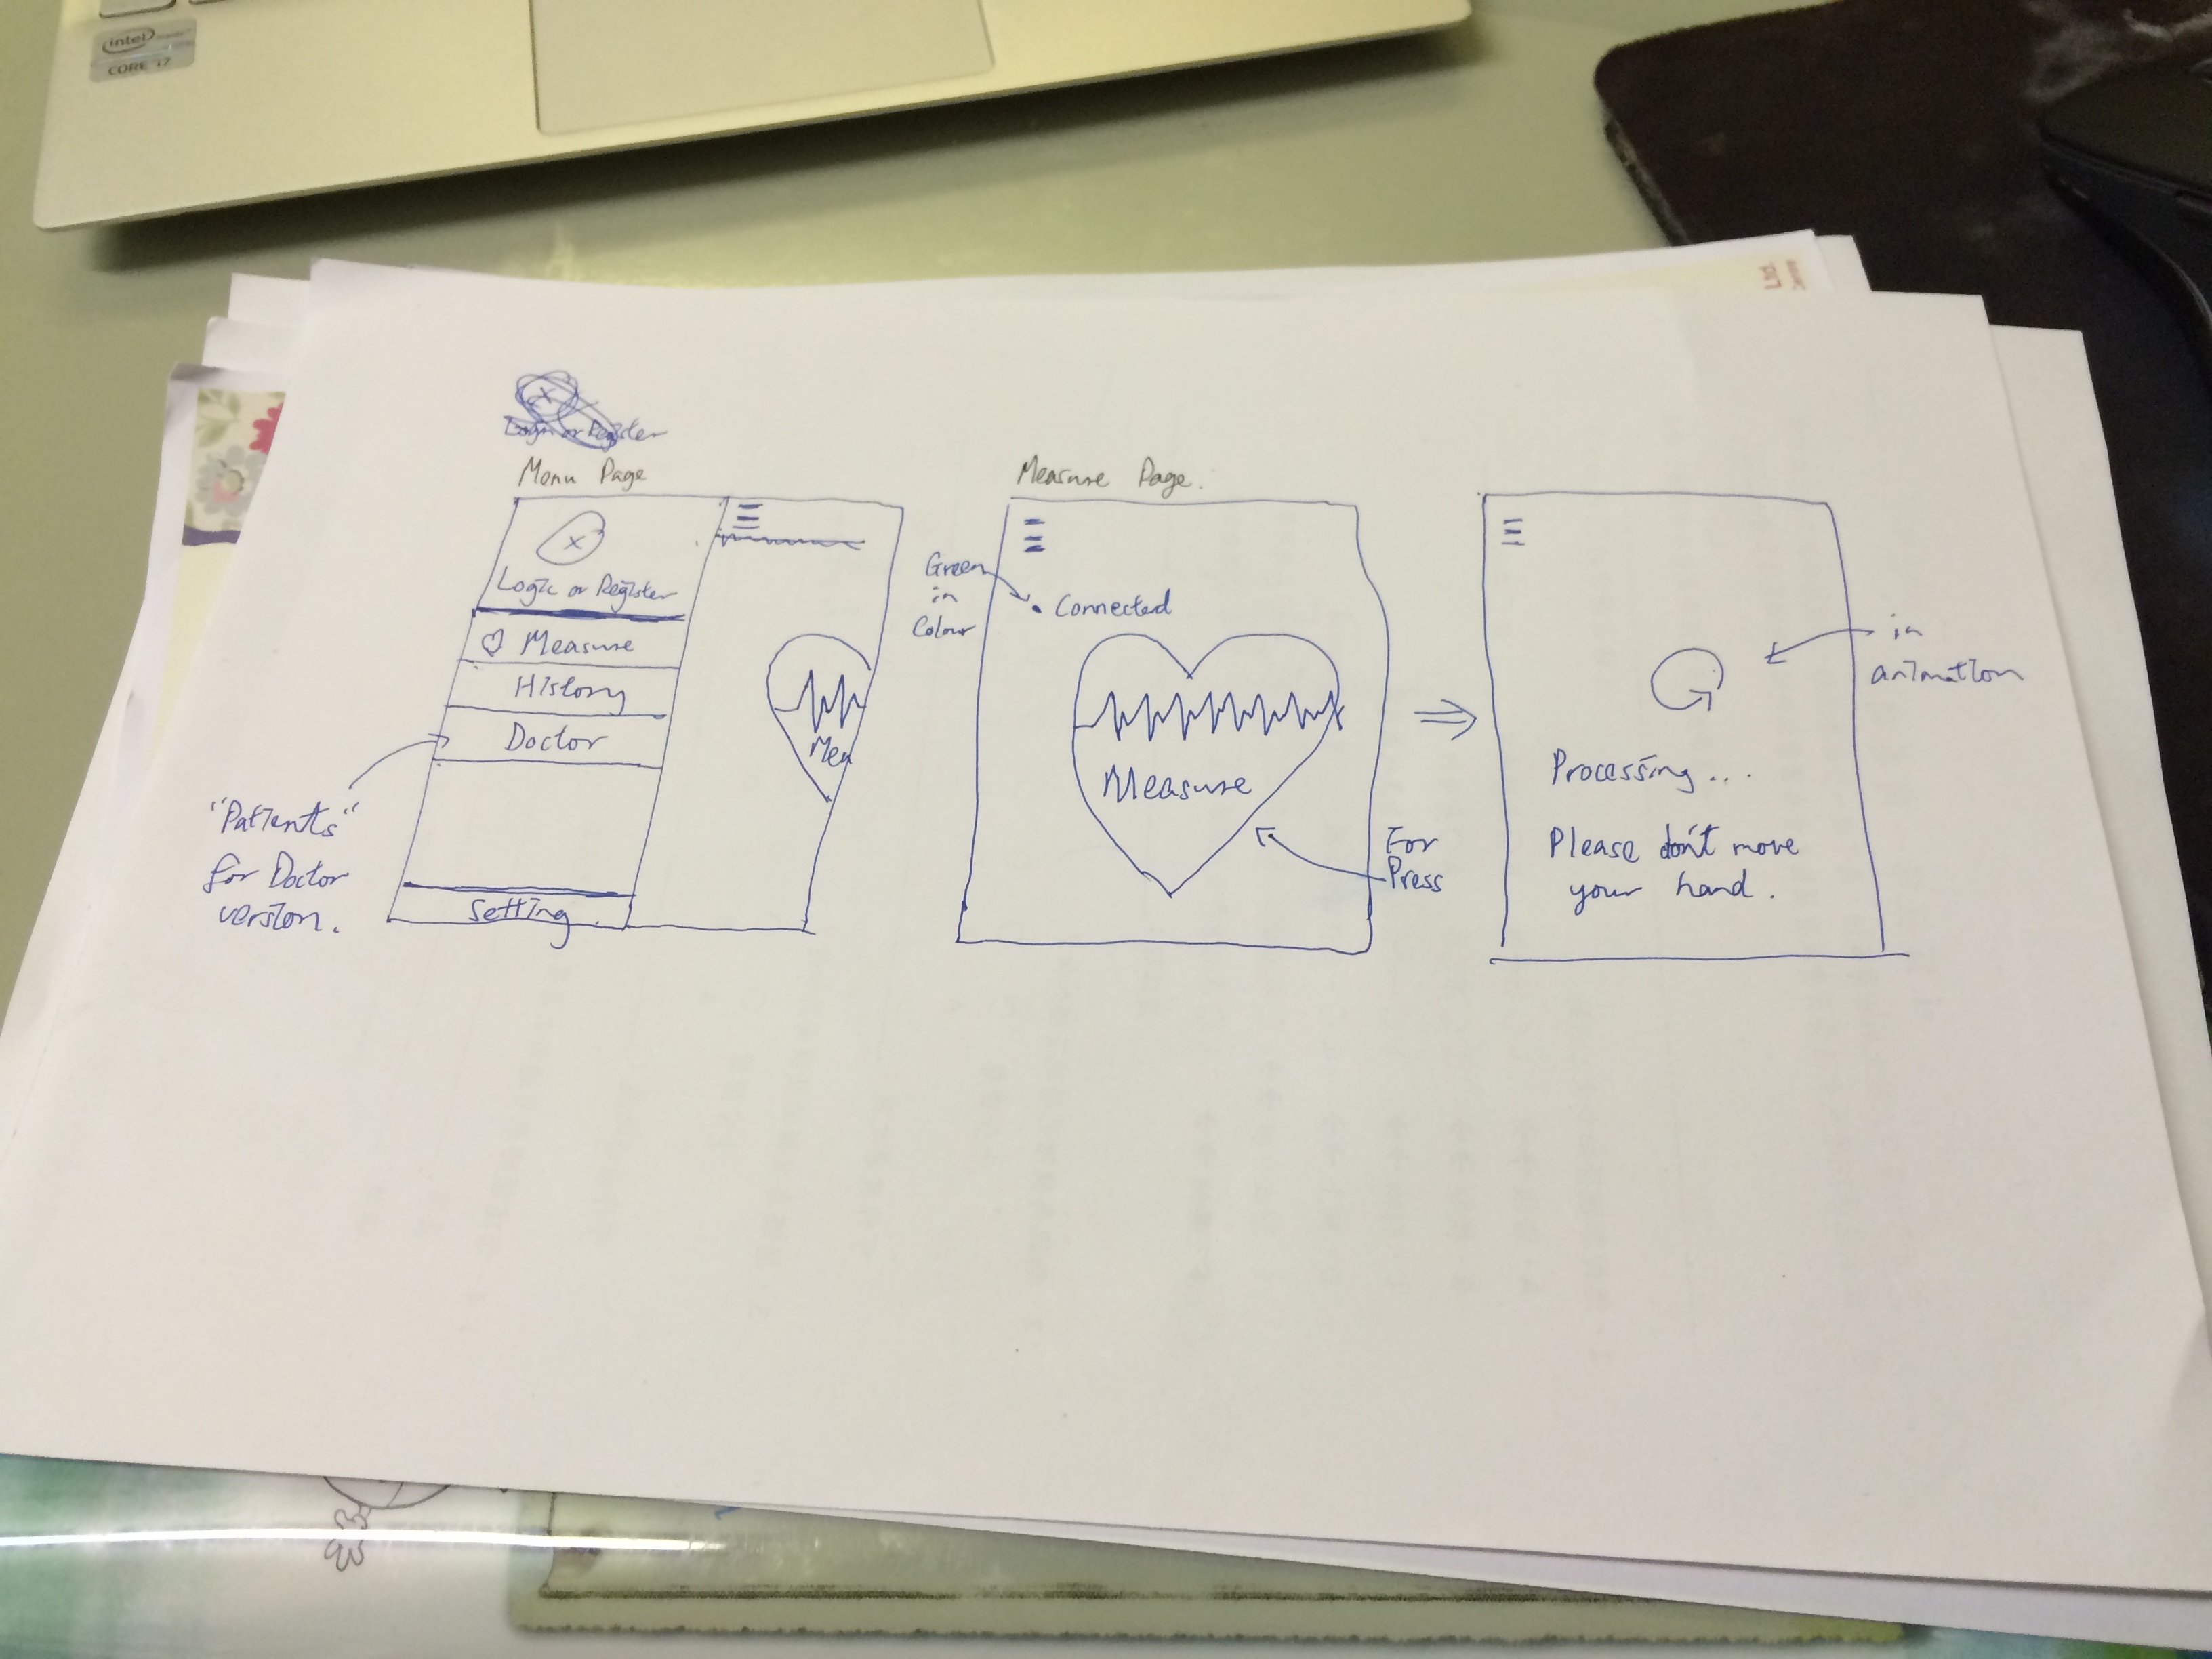 intel
CORE i7
Ltd.
Login or Register
Menu Page
Logic or Register
Measure
History
Doctor
Setting
Mea
"Patients"
for Doctor
version.
Measure Page.
Green
in
Colour
Connected
Measure
For
Press
Processing...
Please don't move
your hand.
in
animation